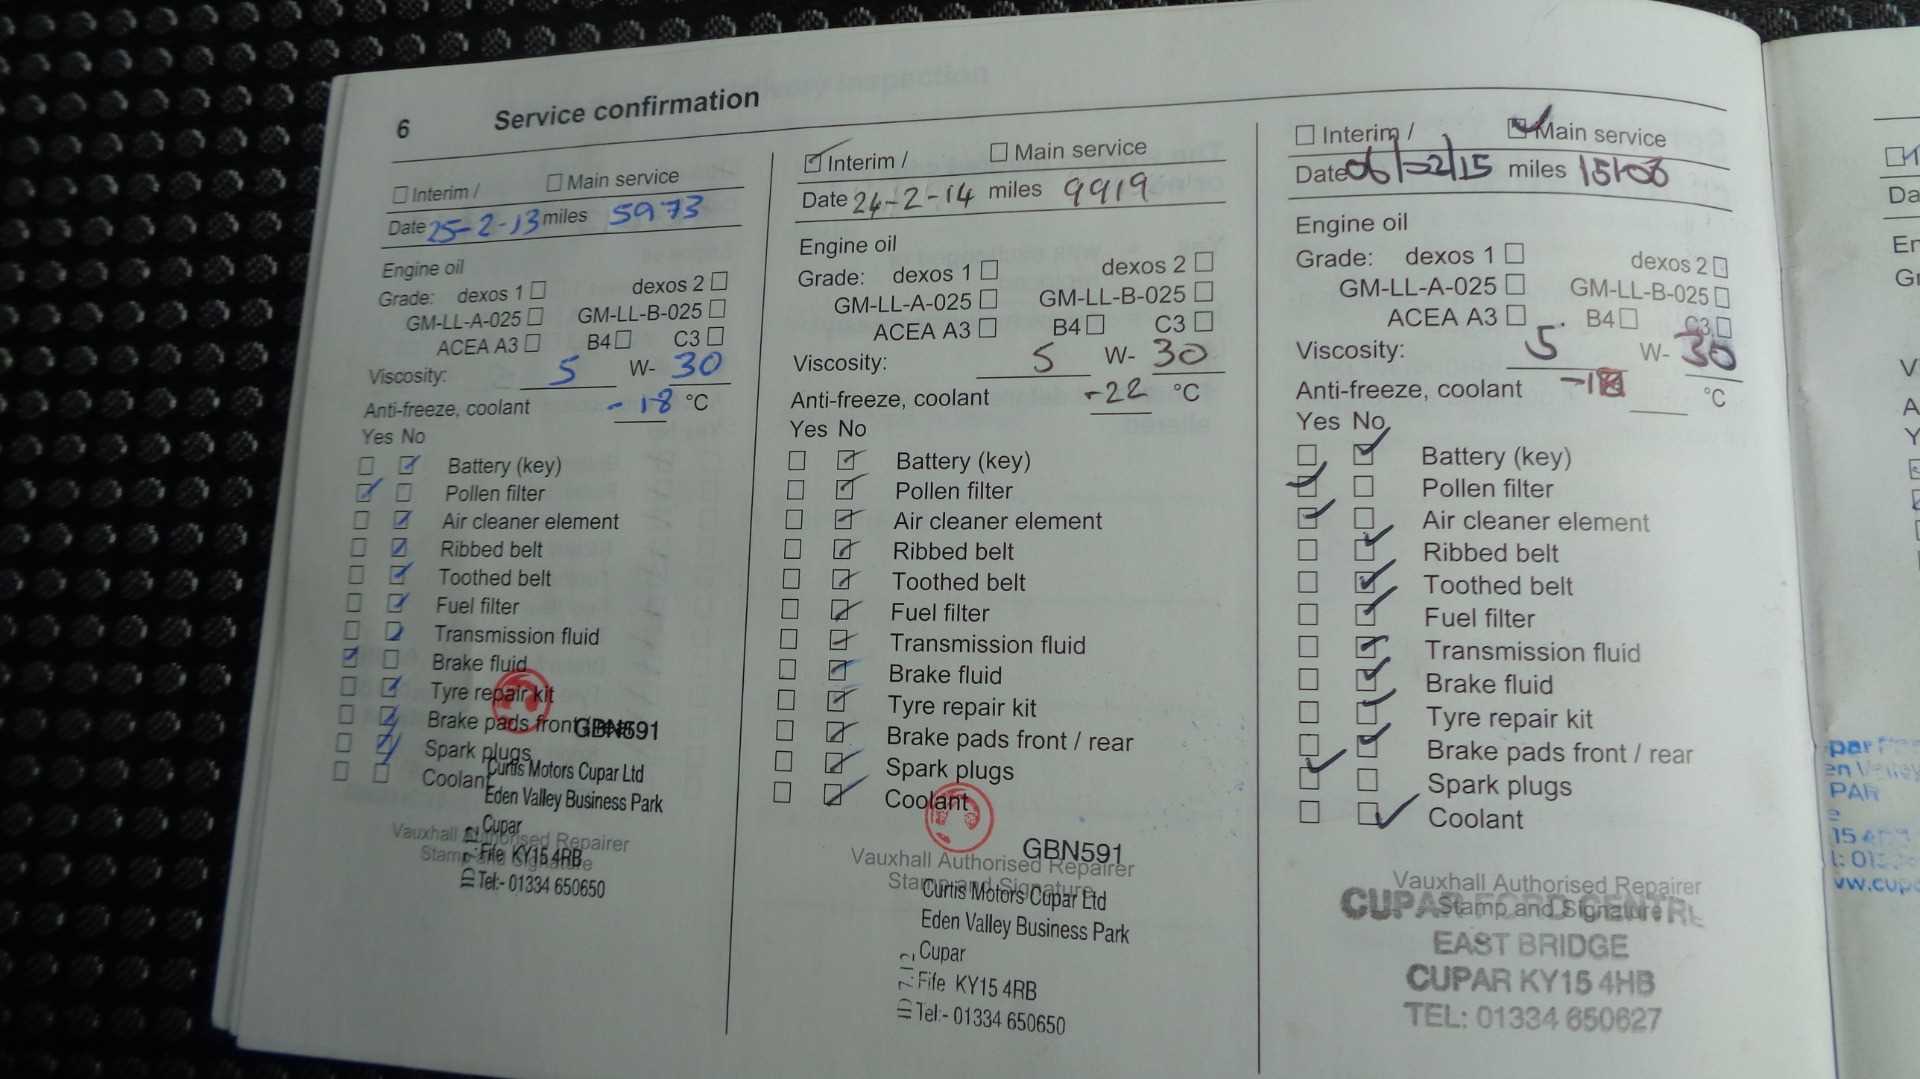 6 Service confirmation
☐ Interim / ☐ Main service
Date 25-2-13 miles 5973
Engine oil
Grade: dexos 1 ☐ dexos 2 ☐
GM-LL-A-025 ☐ GM-LL-B-025 ☐
ACEA A3 ☐ B4 ☐ C3 ☐
Viscosity: 5 W- 30
Anti-freeze, coolant -18 °C
Yes No
Battery (key)
Pollen filter
Air cleaner element
Ribbed belt
Toothed belt
Fuel filter
Transmission fluid
Brake fluid
Tyre repair kit
Brake pads front /
GBN591
Spark plugs
Coolant
Curtis Motors Cupar Ltd
Eden Valley Business Park
Cupar
Fife KY15 4RB
Tel:- 01334 650650
Vauxhall Authorised Repairer
Stamp and Signature
☑ Interim / ☐ Main service
Date 24-2-14 miles 9919
Engine oil
Grade: dexos 1 ☐ dexos 2 ☐
GM-LL-A-025 ☐ GM-LL-B-025 ☐
ACEA A3 ☐ B4 ☐ C3 ☐
Viscosity: 5 W- 30
Anti-freeze, coolant -22 °C
Yes No
Battery (key)
Pollen filter
Air cleaner element
Ribbed belt
Toothed belt
Fuel filter
Transmission fluid
Brake fluid
Tyre repair kit
Brake pads front / rear
Spark plugs
Coolant
GBN591
Vauxhall Authorised Repairer
Stamp and Signature
Curtis Motors Cupar Ltd
Eden Valley Business Park
Cupar
Fife KY15 4RB
Tel:- 01334 650650
☐ Interim / ☑ Main service
Date 06/02/15 miles
Engine oil
Grade: dexos 1 ☐ dexos 2 ☐
GM-LL-A-025 ☐ GM-LL-B-025 ☐
ACEA A3 ☐ B4 ☐ C3 ☐
Viscosity: 5 W- 30
Anti-freeze, coolant °C
Yes No
Battery (key)
Pollen filter
Air cleaner element
Ribbed belt
Toothed belt
Fuel filter
Transmission fluid
Brake fluid
Tyre repair kit
Brake pads front / rear
Spark plugs
Coolant
Vauxhall Authorised Repairer
Stamp and Signature
CUPAR FORD CENTRE
EAST BRIDGE
CUPAR KY15 4HB
TEL: 01334 650627